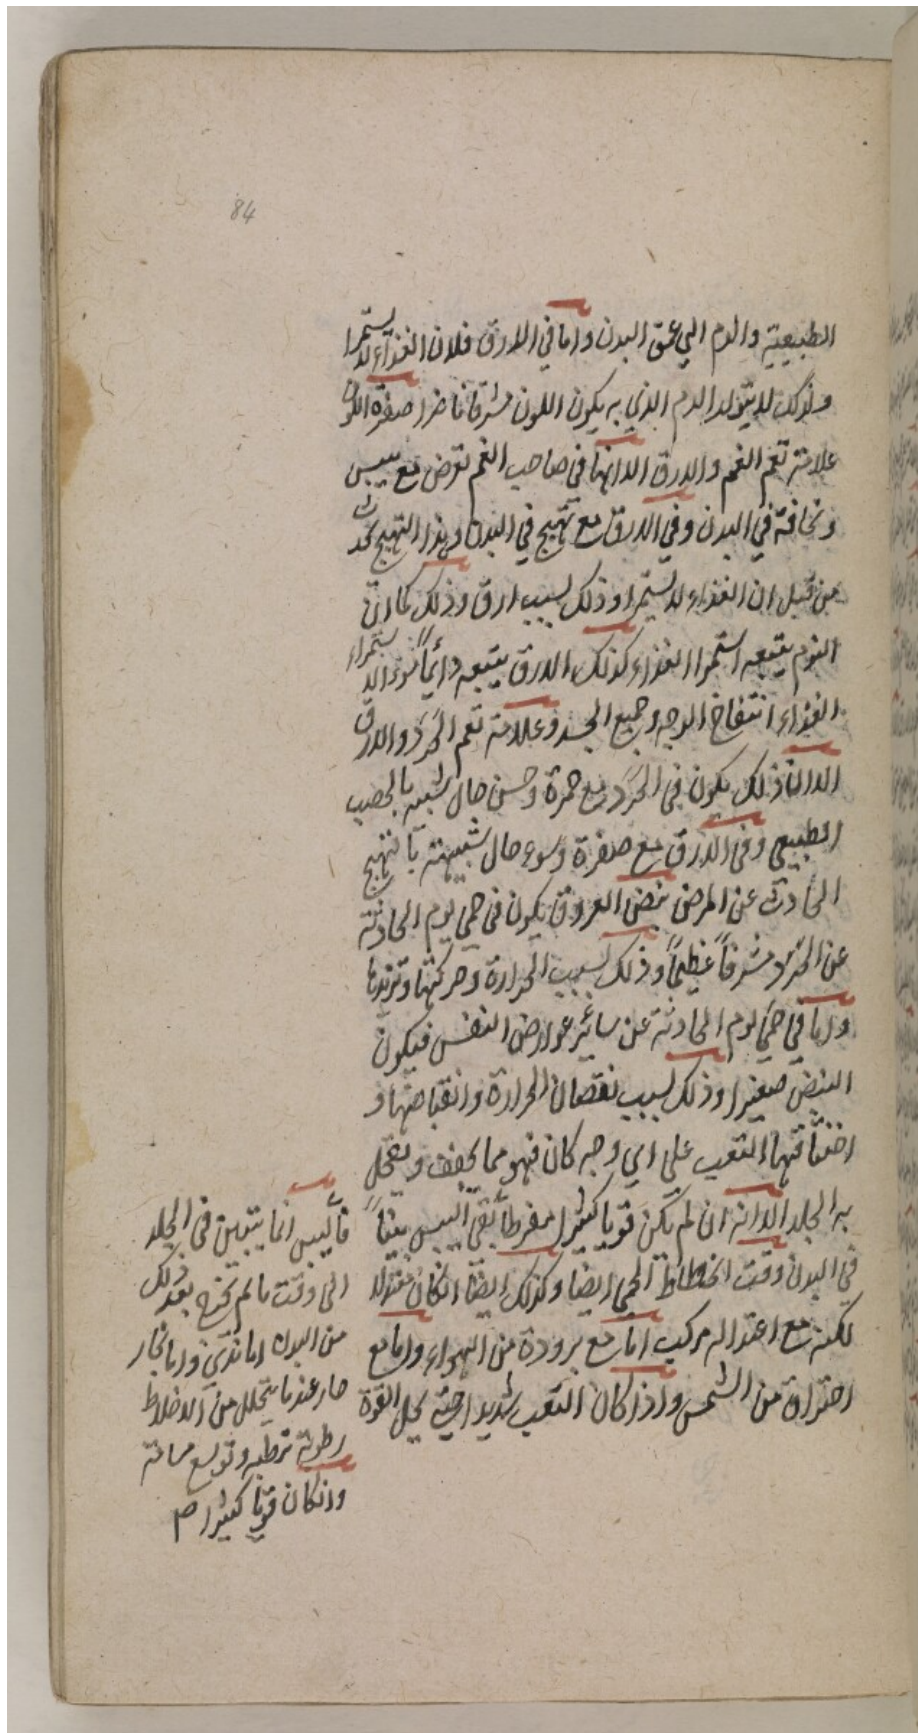 84
الطبيعية والدم الي عمق البدن واما في الارق فلان الغذاء لا يستمرا
ولذلك لا يتولد الدم الذي به يكون اللون مشرقا ناضرا صفرة اللون
علامة تعم الغم والارق الا انها في صاحب الغم تعرض مع يبس
ونحافة في البدن وفي الارق مع تهيج في البدن وهذا التهيج يحدث
من قبل ان الغذاء لا يستمرا وذلك لسبب ارق وذلك كما ان
النوم يتبعه استمرا الغذاء كذلك الارق يتبعه دائماً سوء الاستمراء
الغذاء انتفاخ الوجه وجميع الجسد وعلامة تعم الحرد والارق
الا ان ذلك يكون في الحرد مع حمرة وحسن حال شبيه بالخصب
الطبيعي وفي الارق مع صفرة وسوء حال شبيهة بالتهيج
الحادث عن المرض نبض العروق يكون في حمي يوم الحادثة
عن الحرد مشرفاً عظيماً وذلك لسبب الحرارة وحركتها وتزيدها
واما في حمي يوم الحادثة عن سائر عوارض النفس فيكون
النبض صغيرا وذلك لسبب نقصان الحرارة وانقباضها و
اختناقها التعب علي اي وجه كان فهو مما يجفف ويقحل
به الجلد الا انه ان لم تكن قويا كثيرا مفرطا بقي اليبس بيناً
في البدن وقت انحطاط الحمي ايضا وكذلك ايضا ان كان معتدلا
لكنه مع اعتداله مركب اما مع برودة من الهواء واما مع
احتراق من الشمس واذا كان التعب شديدا حتى يحل القوة
فاليبس انما يتبين في الجلد
الى وقت ما لم يخرج بعد ذلك
من البدن اما ندي واما بخار
حار عندما يتحلل من الاخلاط
رطوبة ترطبه وتوسع مسامه
وان كان قويا كثيرا صم